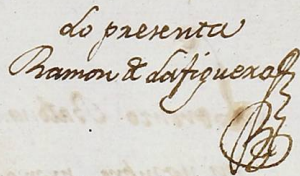 do presenta
Ramon de Lafiguera